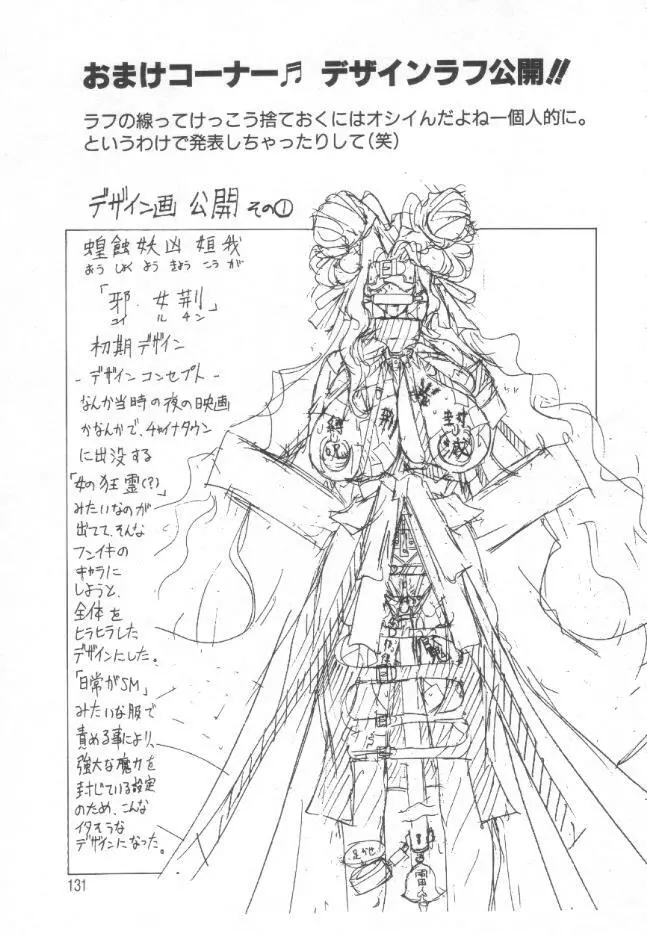 おまけコーナー♬ デザインラフ公開!!
ラフの線ってけっこう捨ておくにはオシイんだよねー個人的に。
というわけで発表しちゃったりして(笑)
デザイン画 公開 その①
蝗蝕妖凶 姮我
おう しょく よう きょう こう が
「邪 女荊」
ユイ ル チン
初期デザイン
-デザインコンセプト-
なんか当時の夜の映画
かなんかで、チャイナタウン
に出没する
「女の狂霊(?)」
みたいなのが
出てて、そんな
フンイキの
キャラに
しようと、
全体を
ヒラヒラした
デザインにした。
「日常がSM」
みたいな服で
責める事により、
強大な魔力を
封じている設定
のため、こんな
イタそうな
デザインになった。
縛
呪
荊
封
蔵
鬼
足かせ
雷
131